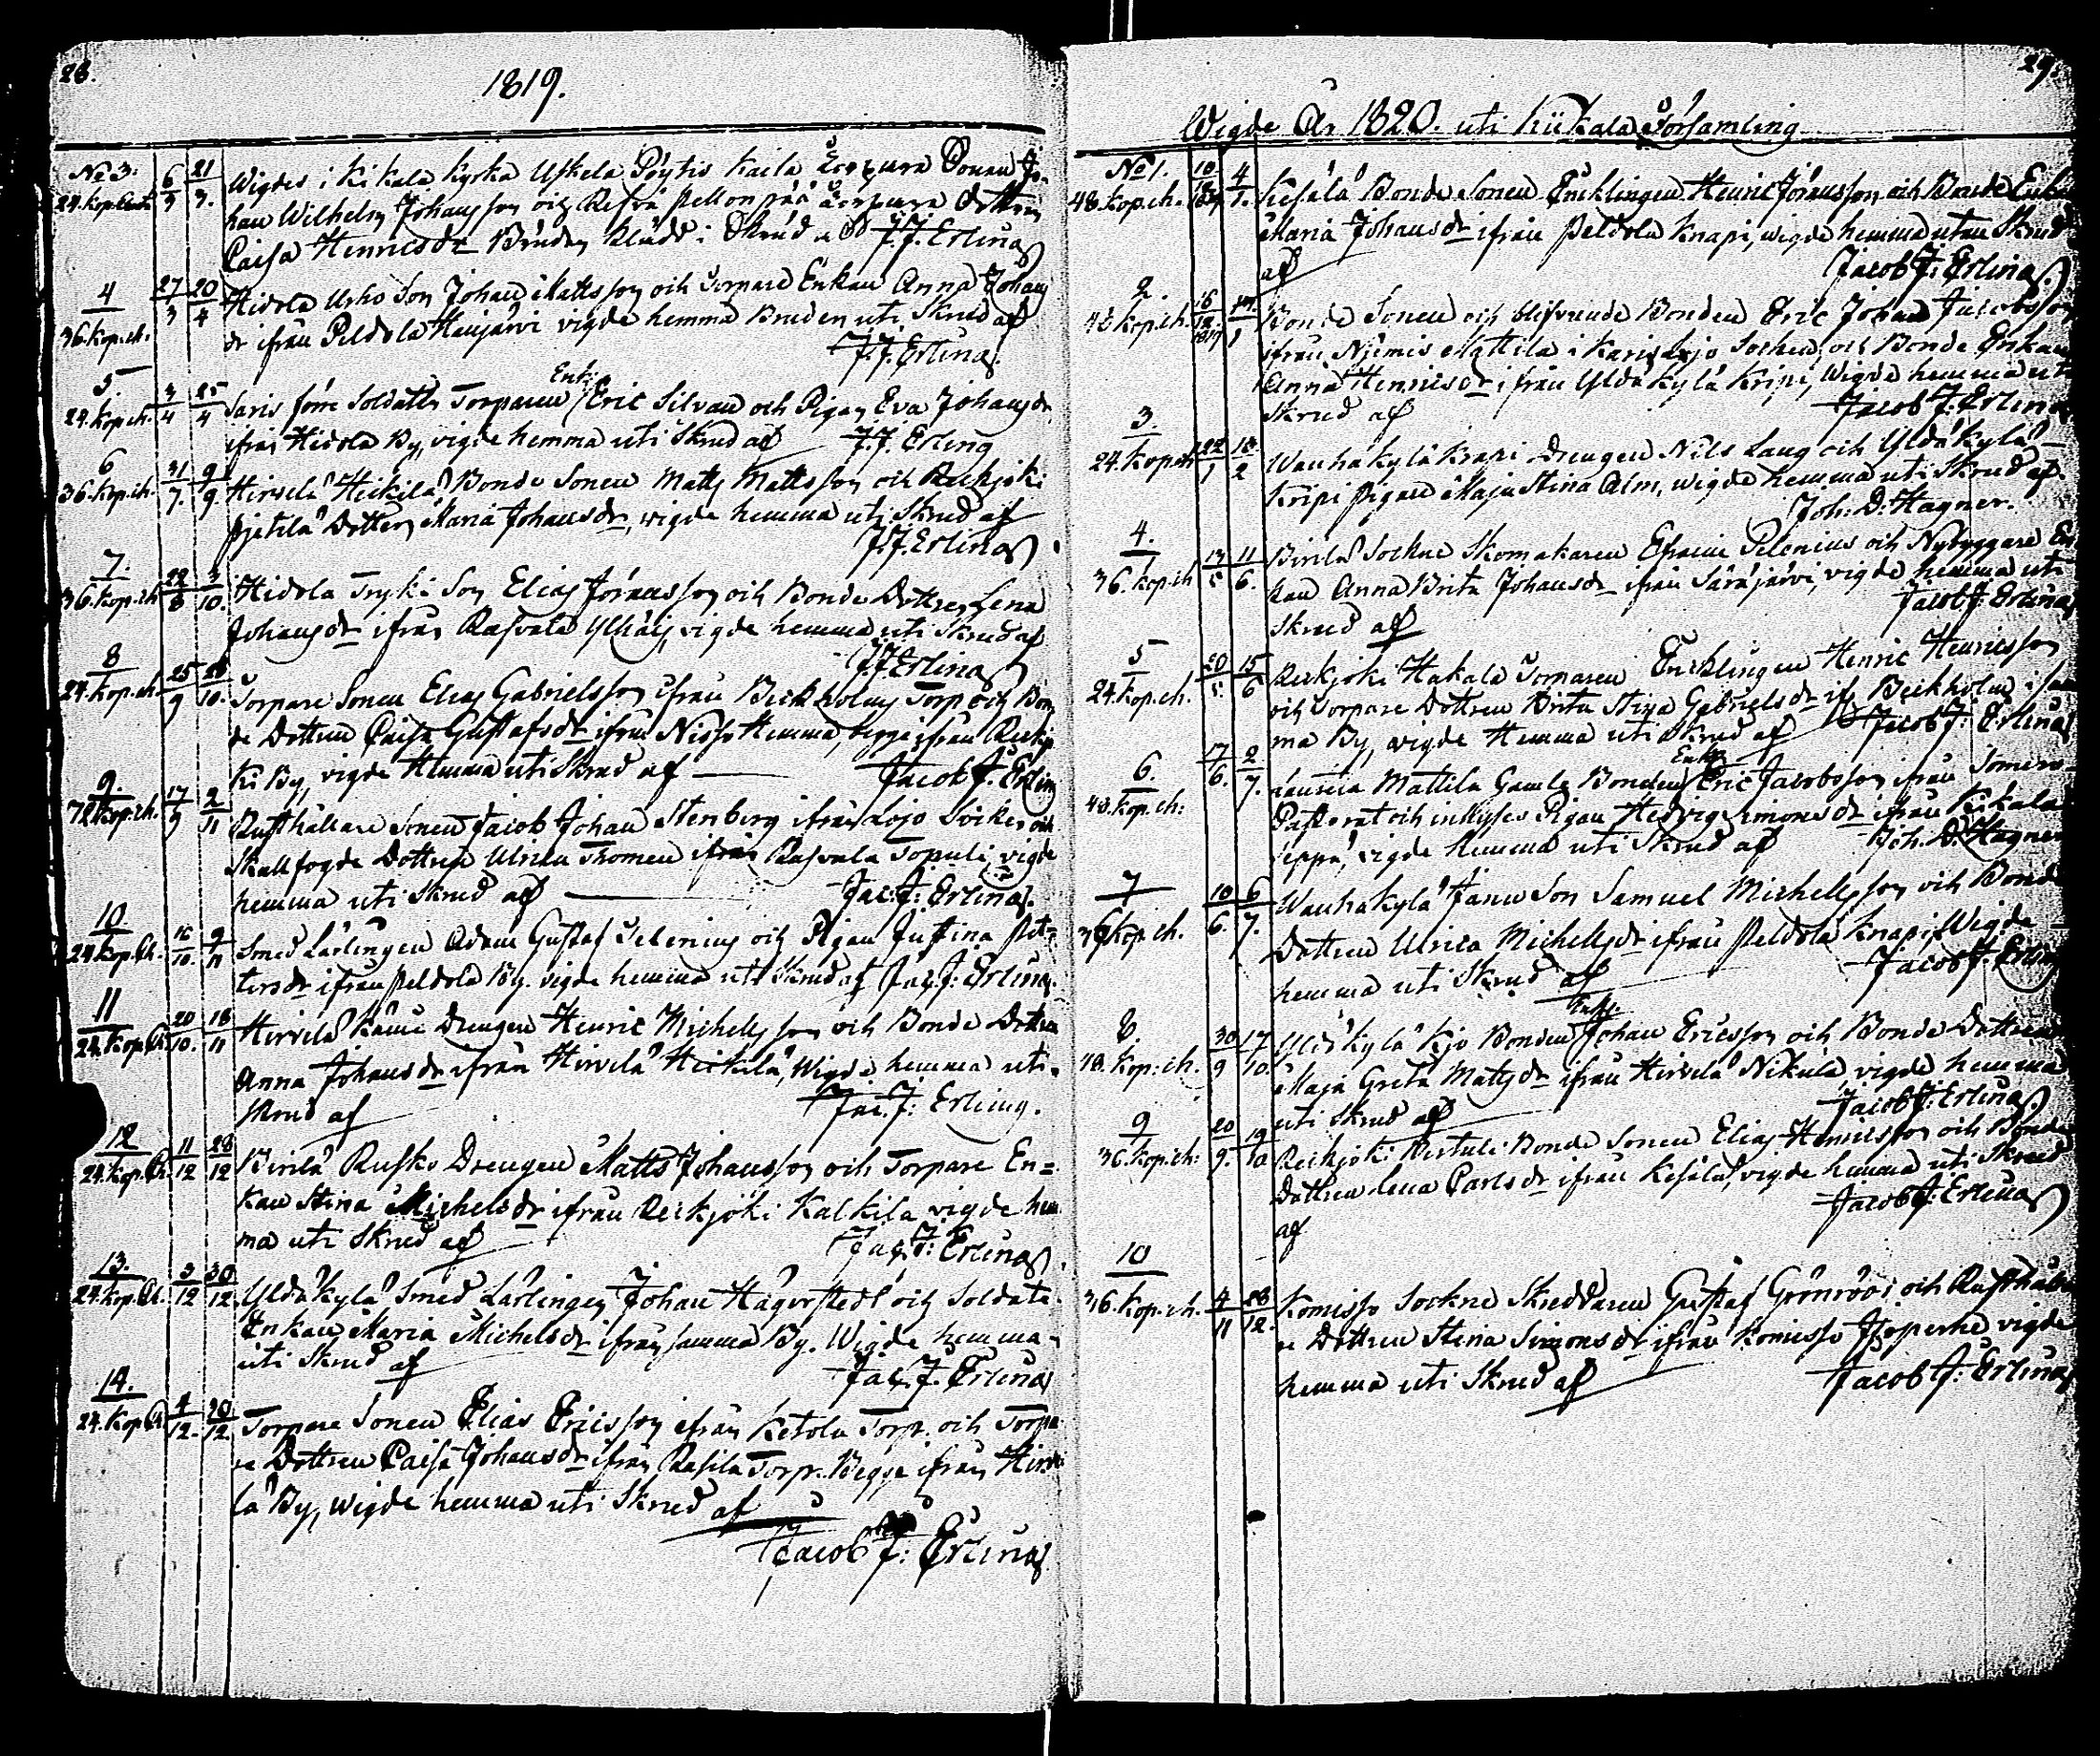 28.
1819.
No 3. 6/3 21/3. Wigdes i Kikala Kyrka Uskela Pöytis Kaila Torpare Sonen Jo-
24. Kop. han Wilhelm Johansson och Torpare Dottren
Caisa Henricsdr Bruden klädd i Skrud af J.J. Erling
4 27/3 20/4 Hidola Urho Son Johan Mattsson och Torpare Enkan Anna Johans
36. Kop. ch. dr ifrån Peldola Haujärvi vigde hemma Bruden uti Skrud af
J.J. Erling.
5 3/4 25/4 Saris förre Soldatten Torparen Enk. Eric Silvan och Pigan Eva Johansdr
24. Kop. ch. ifrån Hidola By, vigde hemma uti Skrud af J.J. Erling
6 31/7. 9/9. Hirvelä Heikilä Bonde Sonen Matts Mattsson och Rekijoki
36. Kop. ch. Pietilä Dotter Maria Johansdr, vigde hemma uti Skrud af
J.J. Erling.
7. 22/8 3/10. Hidola Tryki Son Elias Göransson och Bonde Dottren Lena
36. Kop. ch Johansdr ifrån Rasvala Ylhäis, vigde hemma uti Skrud af
J.J. Erling
8 25/9 10. Torpare Sonen Elias Gabrielsson ifrån Beckholms Torp och Bon
24. Kop. ch. de Dottren Caisa Gustafsdr ifrån Nisso Hemma, begge ifrån Rekijo
ki By, vigde Hemma uti Skrud af Jacob J. Erling
9. 17/9 2/11 Rusthållare Sonen Jacob Johan Stenberg ifrån Lojo Socken och
72 Kop. ch. Skallfogde Dottren Ulrica Thomen ifrån Rasvala Topuli, vigde
hemma uti Skrud af Jac. J. Erling.
10. 16/10. 9/11 Smed Lärlingen Adam Gustaf Selenius och Pigan Justina Pet-
24 Kop. Ch. tersdr ifrån Peldola By. vigde hemma uti Skrud af Jac. J: Erling.
11 20/10. 18/11 Hirvelä Drengen Henric Michelsson och Bonde Dottren
24. Kop. Ch Anna Johansdr ifrån Hirvelä Heikilä, Wigde hemma uti
Skrud af Jac. J: Erling.
12 11/12 28/12 Kirilä Rusko Drengen Matts Johansson och Torpare En=
24. Kop. Ch. kan Stina Michelsdr ifrån Rekijoki Kalkila vigde hem
ma uti Skrud af Jac. J: Erling
13. 3/12 30/12 Yldäkylä Smed Lärlingen Johan Hägerstedt och Soldats
24. Kop. Ch. Enkan Maria Michelsdr ifrån samma By. Wigde hemma
uti Skrud af Jac. J. Erling
14. 4/12. 30/12 Torpare Sonen Elias Ericsson ifrån Ketola Torp. och Torpa
24. Kop Ch re Dottren Caisa Johansdr ifrån Rasila Torp. Begge ifrån Hirve
lä By, wigde hemma uti Skrud af
Jacob J: Erling
29.
Wigde År 1820. uti Kiikala Församling
No 1. 4/1. Kesälä Bonde Sonen Encklingen Henric Göransson och Bonde Enkan
48. Kop. ch. Maria Johansdr ifrån Peldola Knapi, wigde hemma utan Skrud
af Jacob J: Erling
2. Bonde Sonen och blifvande Bonden Eric Johan Jacobsson
Kop. ch. ifrån Nyemis Mattila i Karislojo Socken och Bonde Enkan
Anna Henricsdr ifrån Yldäkylä Kripi, Wigde hemma uti
Skrud af Jacob J: Erling
3. 22/1 18/2 Wauhakylä Krapi Drengen Nils Lang och Yldäkylä
24. Kop. ch Kripi Pigan Maja Stina Alm, wigde hemma uti Skrud af
Joh: D: Hagner.
4. 13/5 11/6. Kirilä Sockne Skomakaren Efraim Pelenius och Nybyggare En
36. Kop. ch kan Anna Brita Johansdr ifrån Särkijärvi, vigde hemma uti
Skrud af Jacob J: Erling
5 20/5. 15/6 Rekijoki Hakala Torparen Encklingen Henric Henricsson
24. Kop. ch. och Torpare Dottren Brita Stina Gabrielsdr ifr Beckholm i sam
ma By, wigde Hemma uti Skrud af Jacob J: Erling
6. 17/6. 2/7. Mattila Gamle Bonden Enkl. Eric Jacobsson ifrån Somero
48. Kop. ch: Pastorat och inhyses Pigan Hedvig Simonsdr ifrån Kikala
Seppä, vigde hemma uti Skrud af Joh. D. Hagner
7 10/6. 6/7. Wauhakylä Janu Son Samuel Michelsson och Bonde
36 Kop. ch. Dottren Ulrica Michelsdr ifrån Peldola Knapi, Wigde
hemma uti Skrud af Jacob J: Erling
8 30/9 17/10 Yldäkylä Kjo Bonden Enkl. Johan Ericsson och Bonde Dottren
48. Kop: ch. Maja Greta Mattsdr ifrån Hirvelä Nikula, vigde hemma
uti Skrud af Jacob J: Erling
9 20/9. 19/10 Rekijoki Pertuli Bonde Sonen Elias Henricsson och Bonde
36. Kop. ch: Dottren Lena Carlsdr ifrån Kesälä, vigde hemma uti Skrud
af Jacob J: Erling
10 4/11 28/12. Komisso Sockne Skreddaren Gustaf Grönroos och Rusthålla
36. Kop. ch. re Dottren Stina Simonsdr ifrån Komisso Isoperhe vigde
hemma uti Skrud af Jacob J: Erling